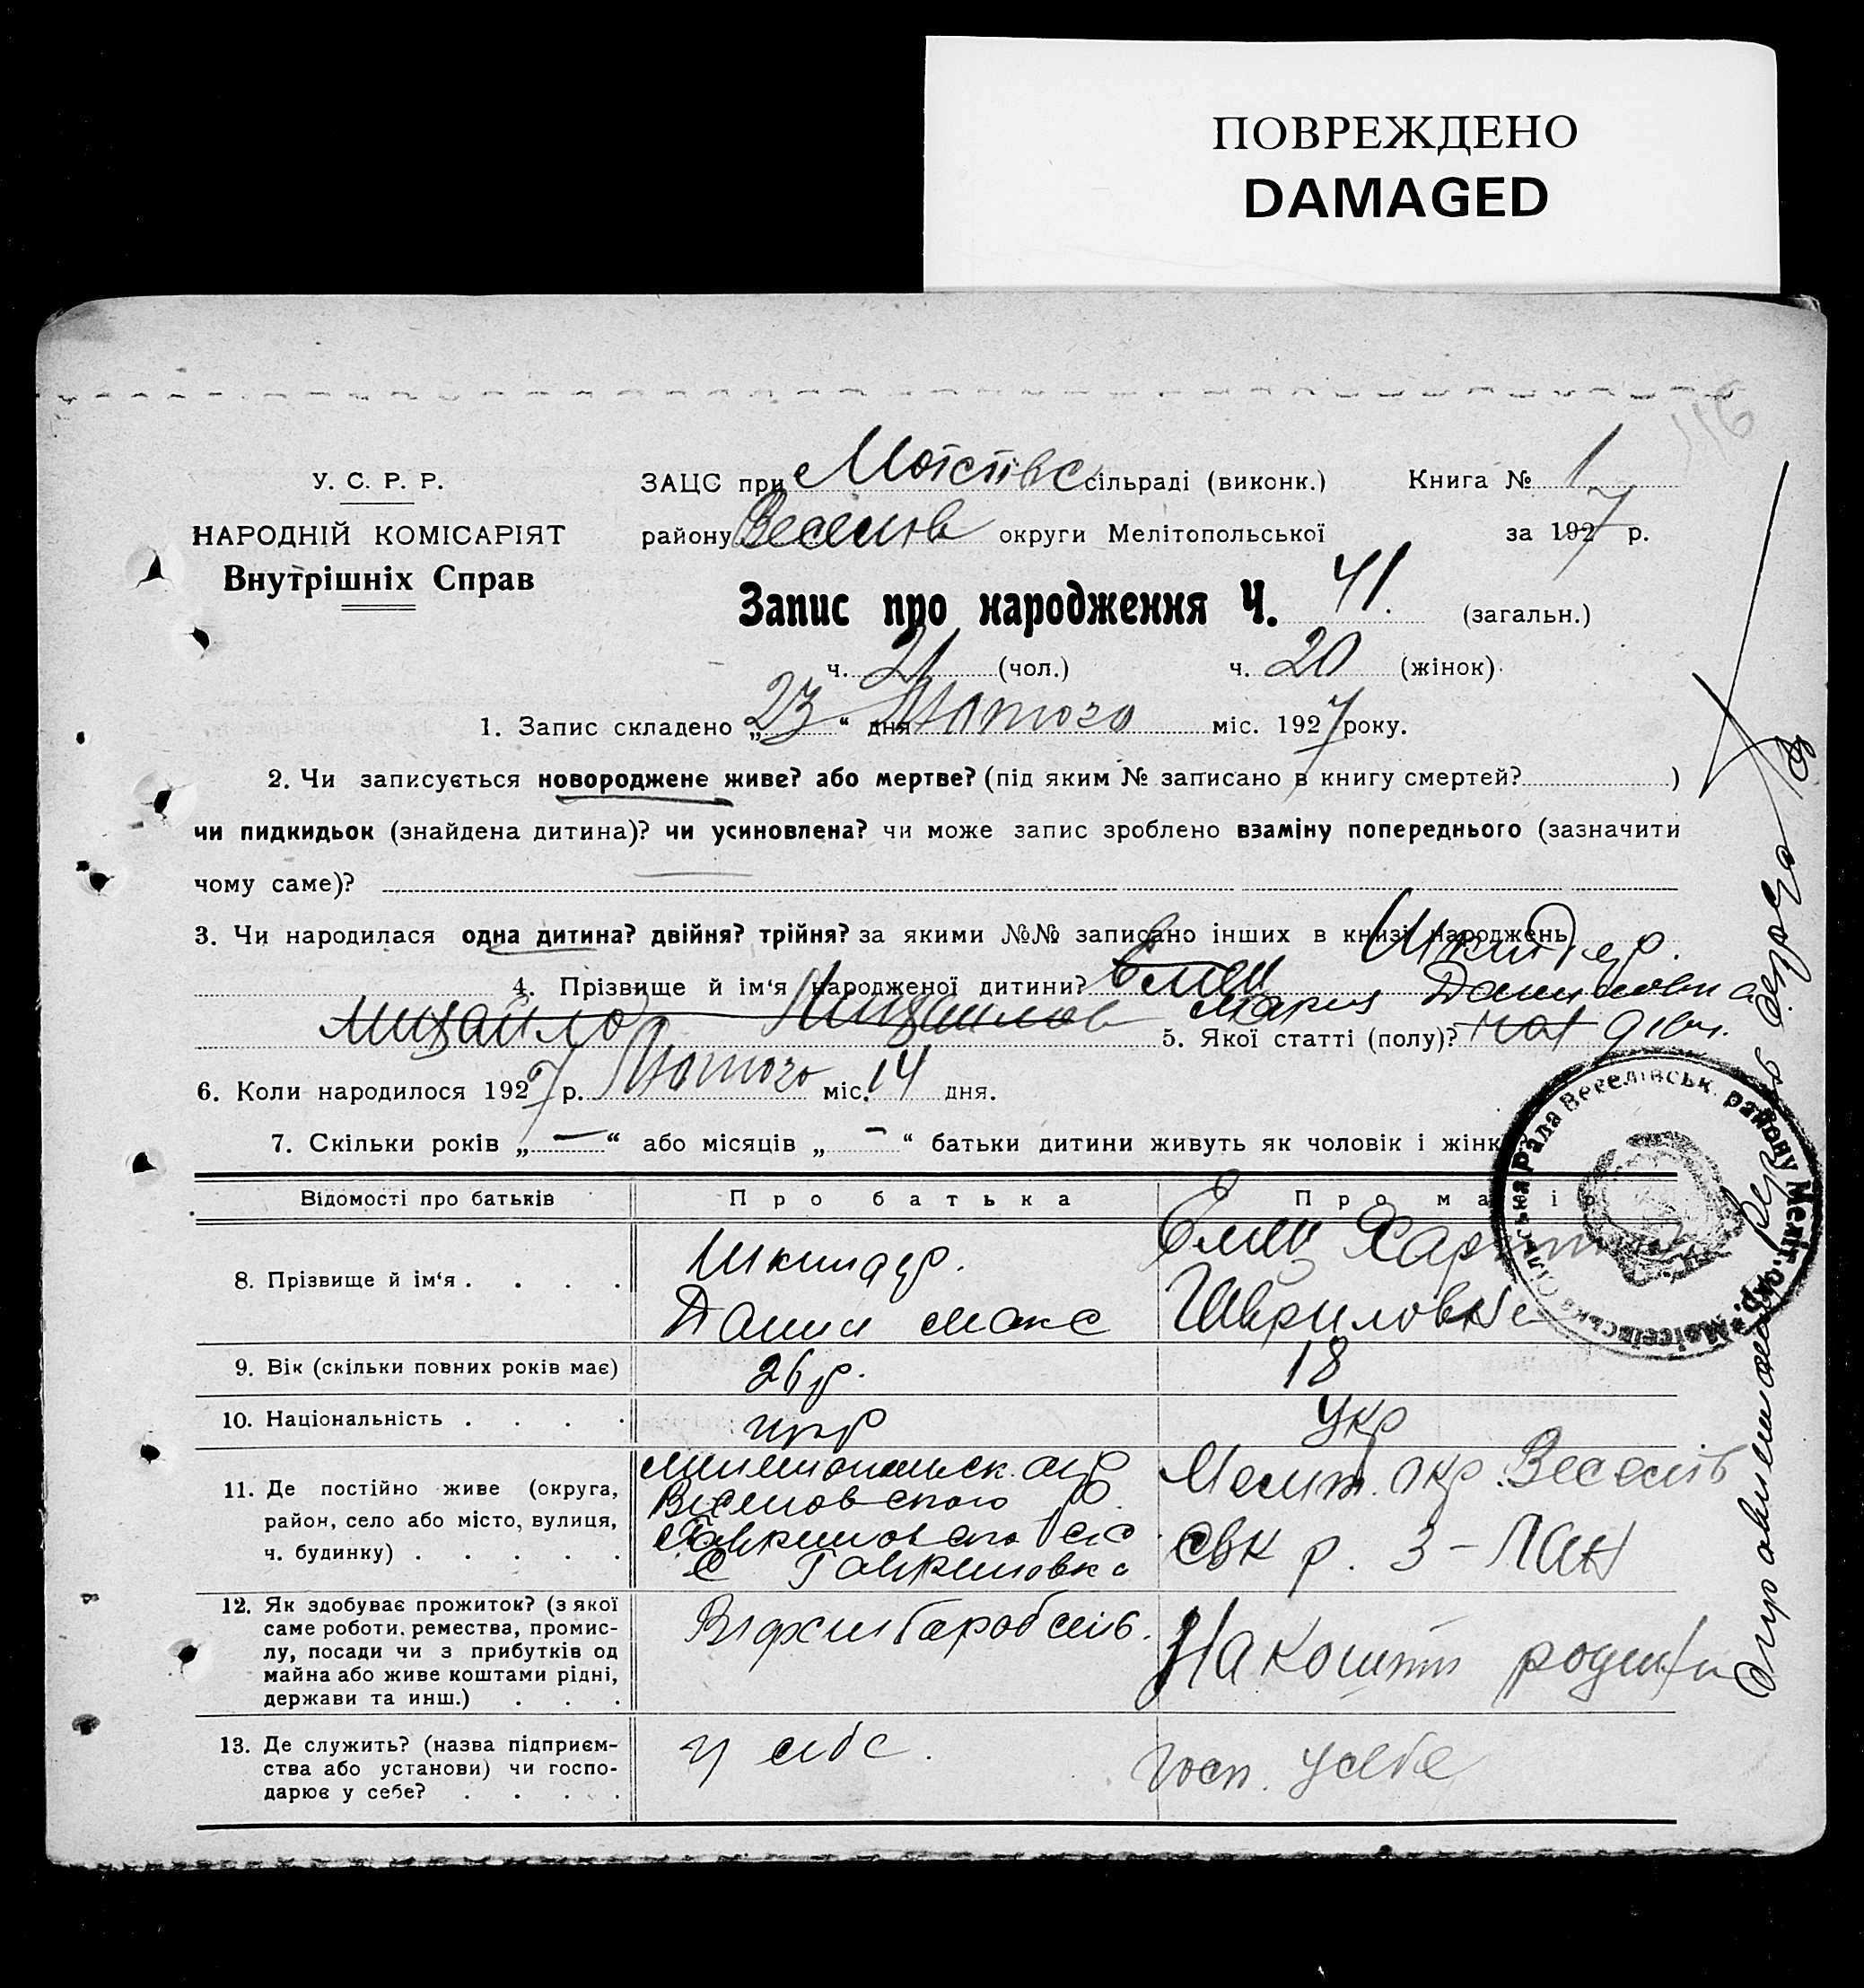 ПОВРЕЖДЕНО
DAMAGED
116
У. С. Р. Р.
НАРОДНІЙ КОМІСАРІЯТ
Внутрішніх Справ
ЗАЦС при Моісіївс сільраді (виконк.) Книга № 1
району Веселов округи Мелітопольської за 1927 р.
Запис про народження Ч. 41. (загальн.)
ч. 21 (чол.) ч. 20 (жінок)
1. Запис складено „23“ дня Лютого міс. 1927 року.
2. Чи записується новороджене живе? або мертве? (під яким № записано в книгу смертей? )
чи пидкидьок (знайдена дитина)? чи усиновлена? чи може запис зроблено взаміну попереднього (зазначити
чому саме)?
3. Чи народилася одна дитина? двійня? трійня? за якими №№ записано інших в книзі народжень
4. Прізвище й ім‘я народженої дитини? Елец
Мария Даниловна
Михайло Михайлов 5. Якої статті (полу)? чол дівч.
6. Коли народилося 1927 р. Лютого міс. 14 дня.
7. Скільки років „—“ або місяців „—“ батьки дитини живуть як чоловік і жінк
Відомості про батьків Про батька Про ма і р
8. Прізвище й ім‘я . . . . Данил Макс Елец Гавриловна
9. Вік (скільки повних років має) 26 р. 18
10. Національність . . . . укр Укр
11. Де постійно живе (округа,
район, село або місто, вулиця,
ч. будинку) . . . . .
с Гавриловка
Меліт. окр. Веселів
свк р. З-Лан
12. Як здобуває прожиток? (з якої
саме роботи, ремества, промис-
лу, посади чи з прибутків од
майна або живе коштами рідні,
держави та инш.) . . .
На кошти родини
13. Де служить? (назва підприєм-
ства або установи) чи госпо-
дарює у себе? . . . .
у себе. Госп. у себе
Рада Веселівськ. району Меліт. окр. Моісеївська